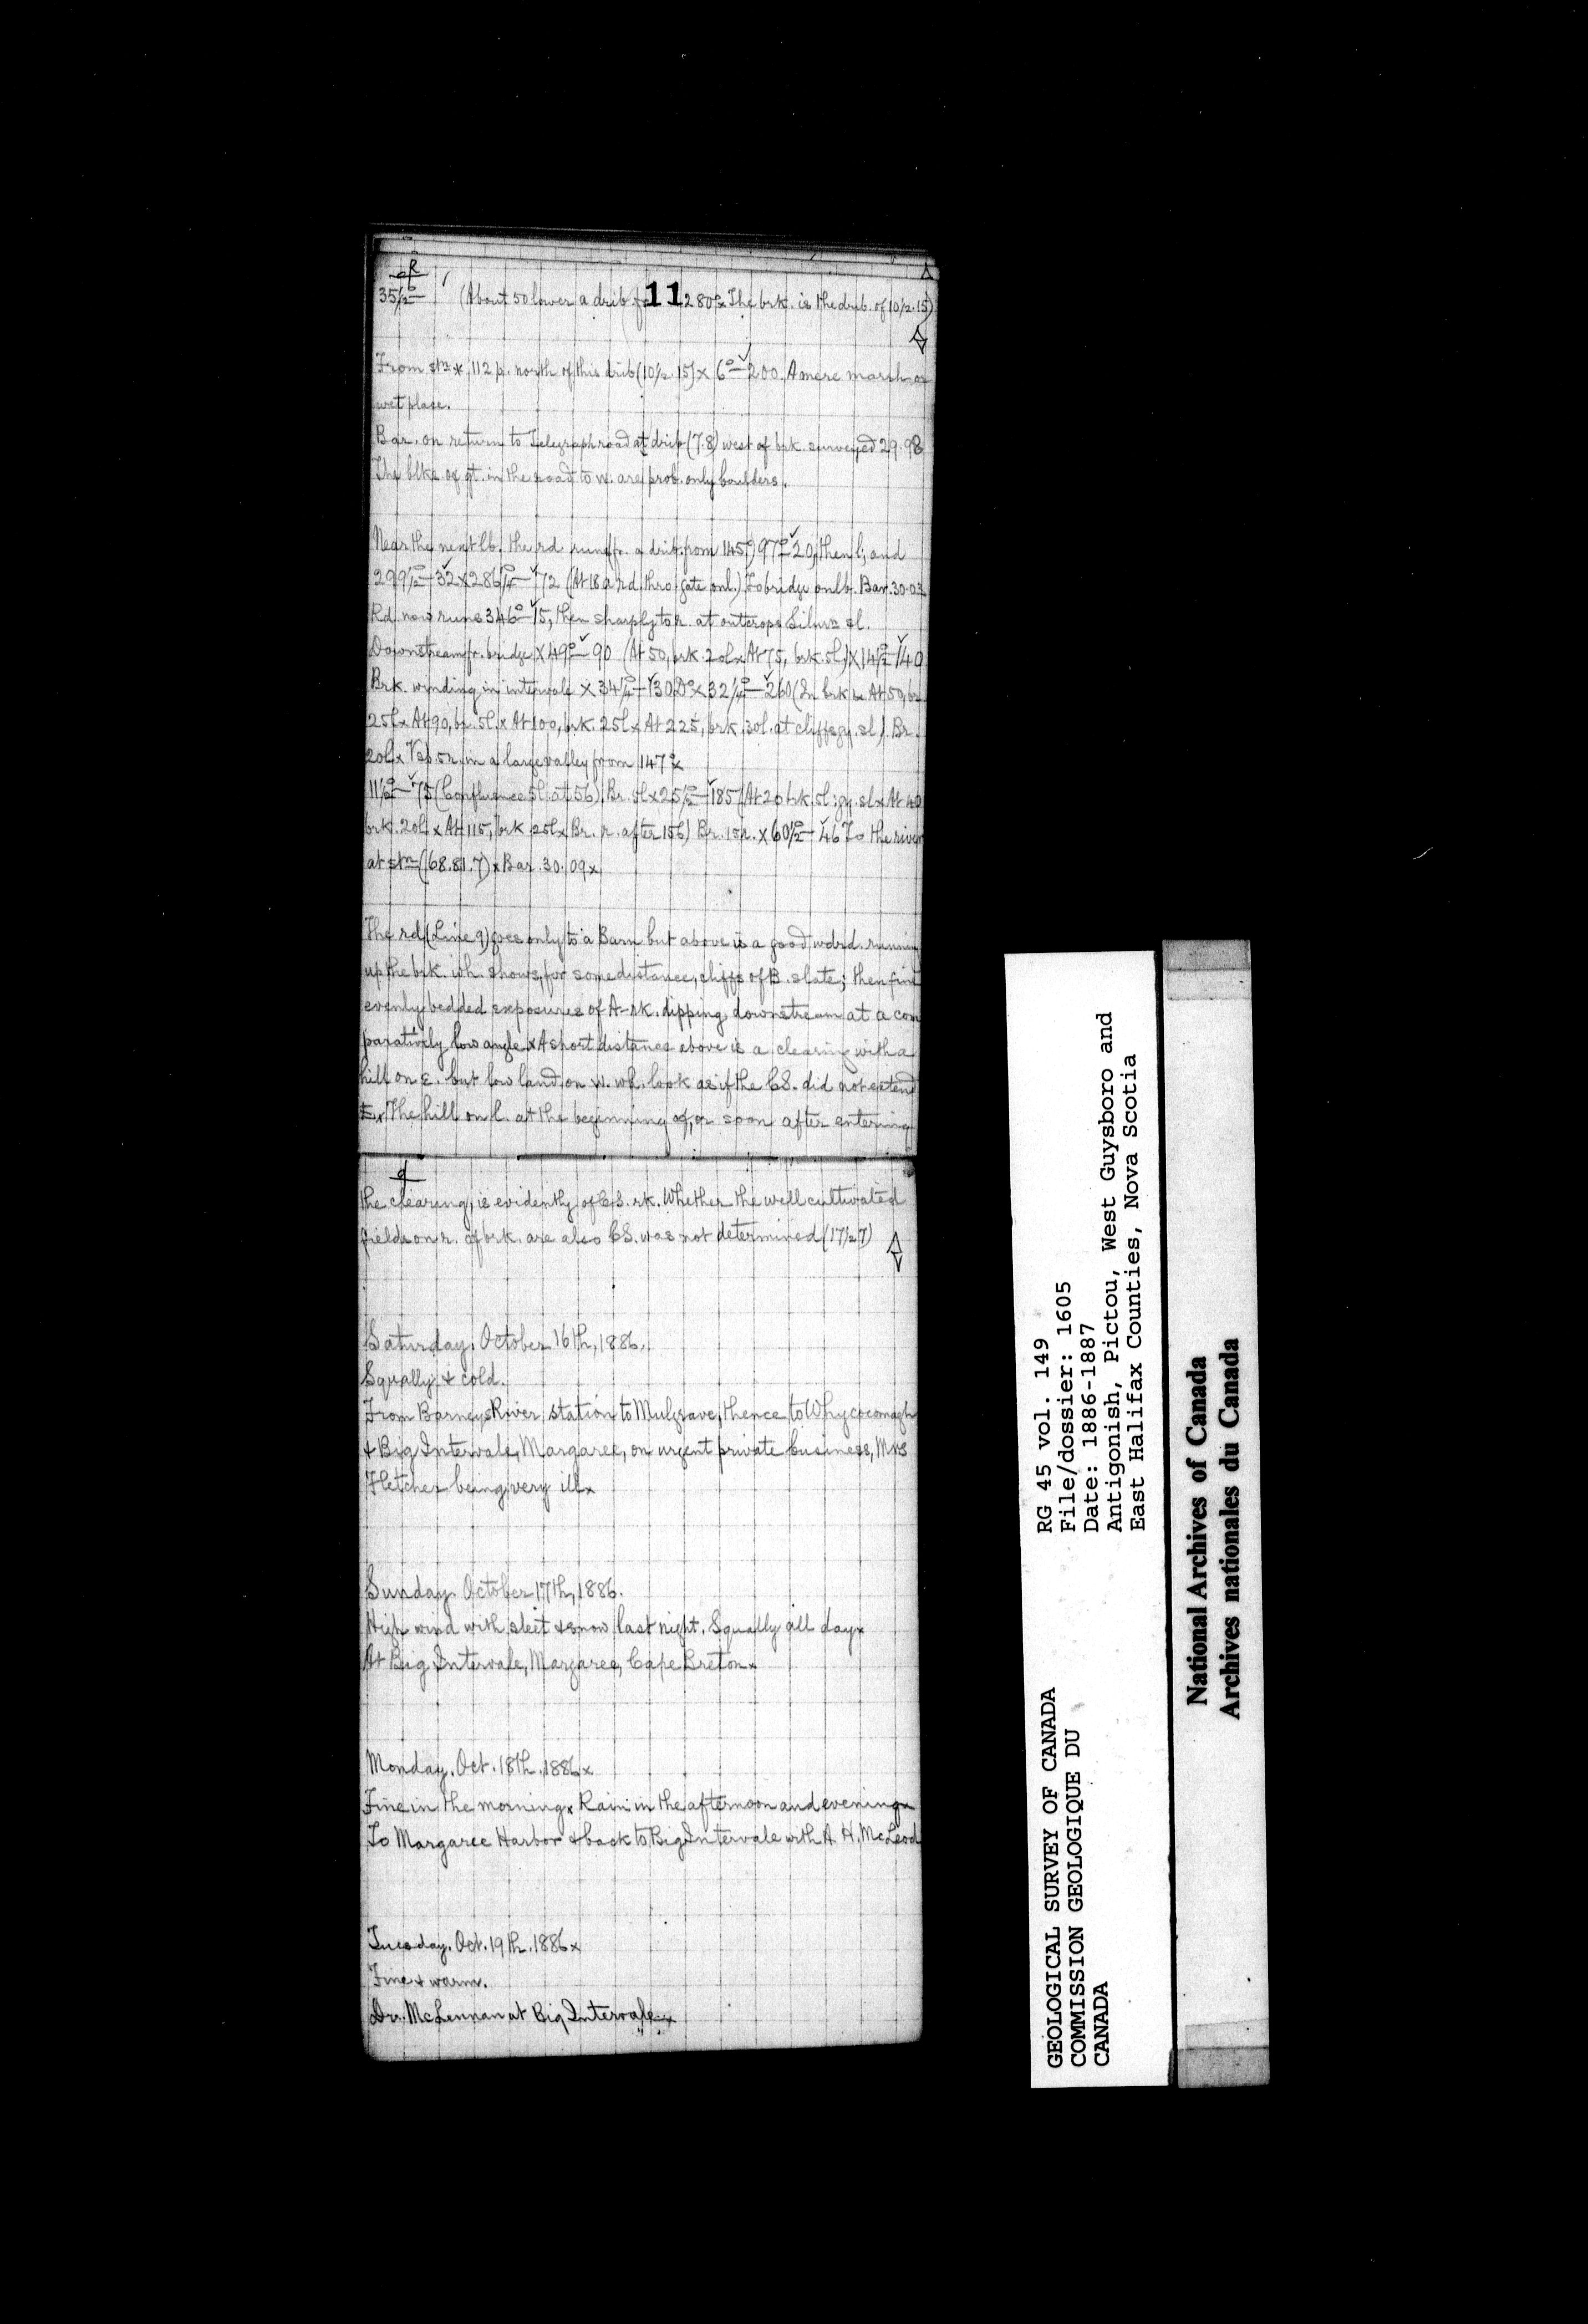 R
35½° (About 50 lower a drib. fr. 280° x The brk. is the drib. of 10½.15)
11
From stn * 112 p. north of this drib (10½.15) x 6° — 200. A mere marsh or
wet place.
Bar. on return to Telegraph road at drib (7.8) west of brk. surveyed 29.98
The blks of qt. in the road to w. are prob. only boulders.
Near the next lb. the rd runs (fr. a drib. from 145°) 97° — 20, then l; and
299½° — 32 x 286¼° — 172 (At 18 a rd. thro. gate on l.) To bridge on lb. Bar. 30.03
Rd. now runs 346° — 15, then sharply to r. at outcrops Silurn sl.
Downstream fr. bridge x 49° — 90 (At 50, brk. 20l x At 75, brk. 5l) x 14½° — 140
Brk. winding in intervale x 34¼° — 130. Do x 32¼° — 260 (In brk x At 50, br.
25l x At 90, br. 5l. x At 100, brk. 25l x At 225, brk. 30l. at cliffs gy. sl). Br.
20l x V sb. 5r. in a large valley from 147° x
11½° — 75 (Confluence 5l at 56). Br. 5l x 25½° — 185 (At 20 brk. 5l: gy. sl x At 40
brk. 20l. x At 115, brk. 25l x Br. r. after 156) Br. 15r. x 60½° — 46 To the river
at stn (168.81.7) x Bar. 30.09 x
The rd (Line 9) goes only to a Barn but above is a good wdrd. running
up the brk. wh. shows, for some distance, cliffs of B. slate; then fine
evenly bedded exposures of A-rk. dipping downstream at a com
paratively low angle x A short distance above is a clearing with a
hill on E. but low land on W. wh. look as if the CS. did not extend
E. x The hill on l. at the beginning of, or soon after entering
the clearing, is evidently of CS. rk. Whether the well cultivated
fields on r. of brk. are also CS. was not determined (17½.7)
Saturday. October 16th, 1886.
Squally & cold.
From Barneys River station to Mulgrave, thence to Whycocomagh
& Big Intervale, Margaree, on urgent private business, Mrs
Fletcher being very ill x
Sunday. October 17th, 1886.
High wind with sleet & snow last night. Squally all day x
At Big Intervale, Margaree, Cape Breton x
Monday. Oct. 18th. 1886 x
Fine in the morning x Rain in the afternoon and evening x
To Margaree Harbor & back to Big Intervale with A. H. McLeod
Tuesday. Oct. 19th. 1886 x
Fine & warm.
Dr. McLennan at Big Intervale x
GEOLOGICAL SURVEY OF CANADA
COMMISSION GEOLOGIQUE DU
CANADA
RG 45 vol. 149
File/dossier: 1605
Date: 1886-1887
Antigonish, Pictou, West Guysboro and
East Halifax Counties, Nova Scotia
National Archives of Canada
Archives nationales du Canada